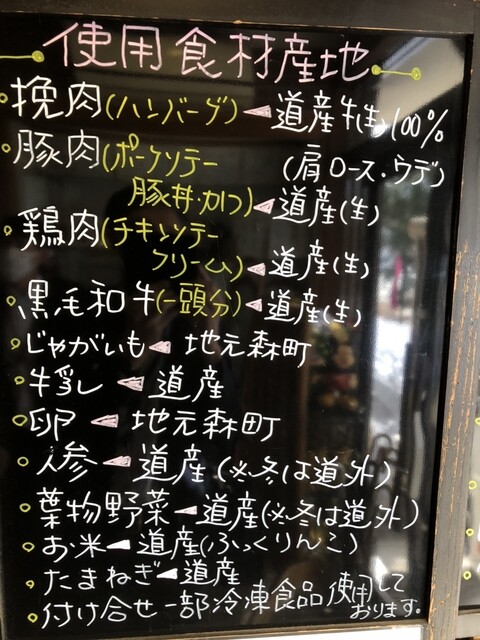 使用食材産地
挽肉(ハンバーグ)◀道産牛(生)100%
(肩ロース・ウデ)
豚肉(ポークソテー
豚丼・カツ)◀道産(生)
鶏肉(チキンソテー
クリーム)◀道産(生)
黒毛和牛(一頭分)◀道産(生)
じゃがいも◀地元森町
牛乳◀道産
卵◀地元森町
人参◀道産(※冬は道外)
葉物野菜◀道産(※冬は道外)
お米◀道産(ふっくりんこ)
たまねぎ◀道産
付け合せ一部冷凍食品使用して
おります。